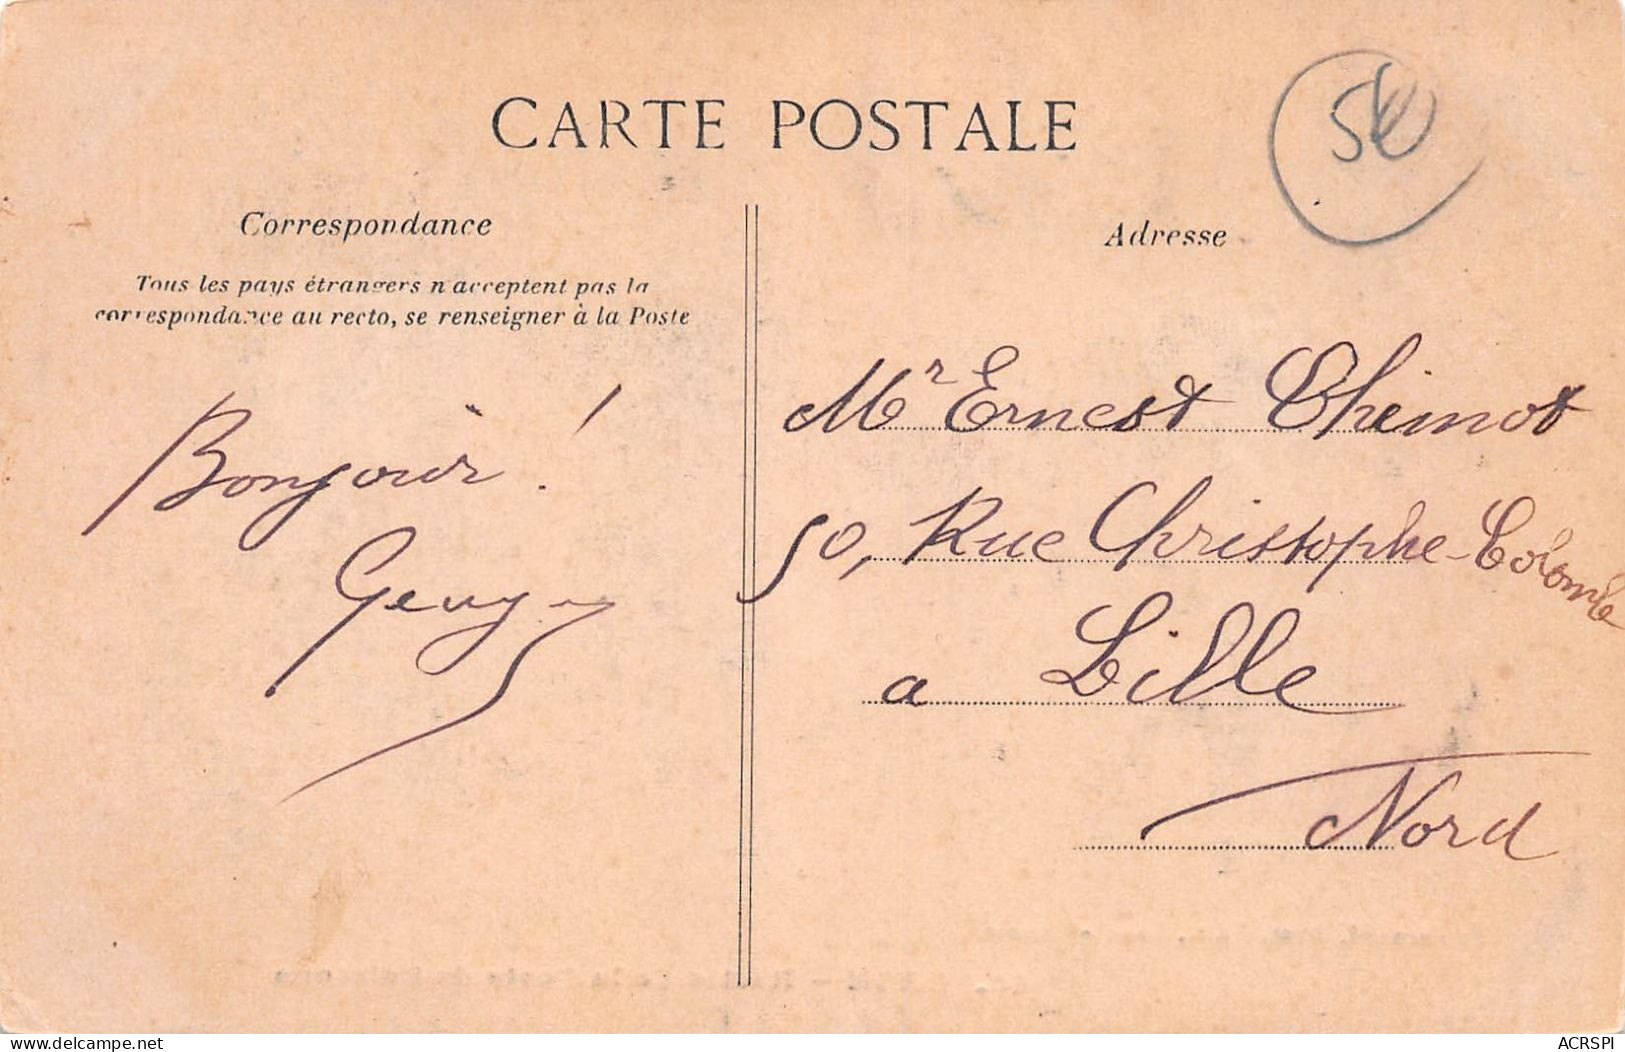 CARTE POSTALE
Correspondance
Tous les pays étrangers n'acceptent pas la
correspondance au recto, se renseigner à la Poste
Bonjour !
Adresse
Mr Ernest Thimot
50, Rue Christophe-Colomb
a Lille
Nord
delcampe.net
ACRSPI